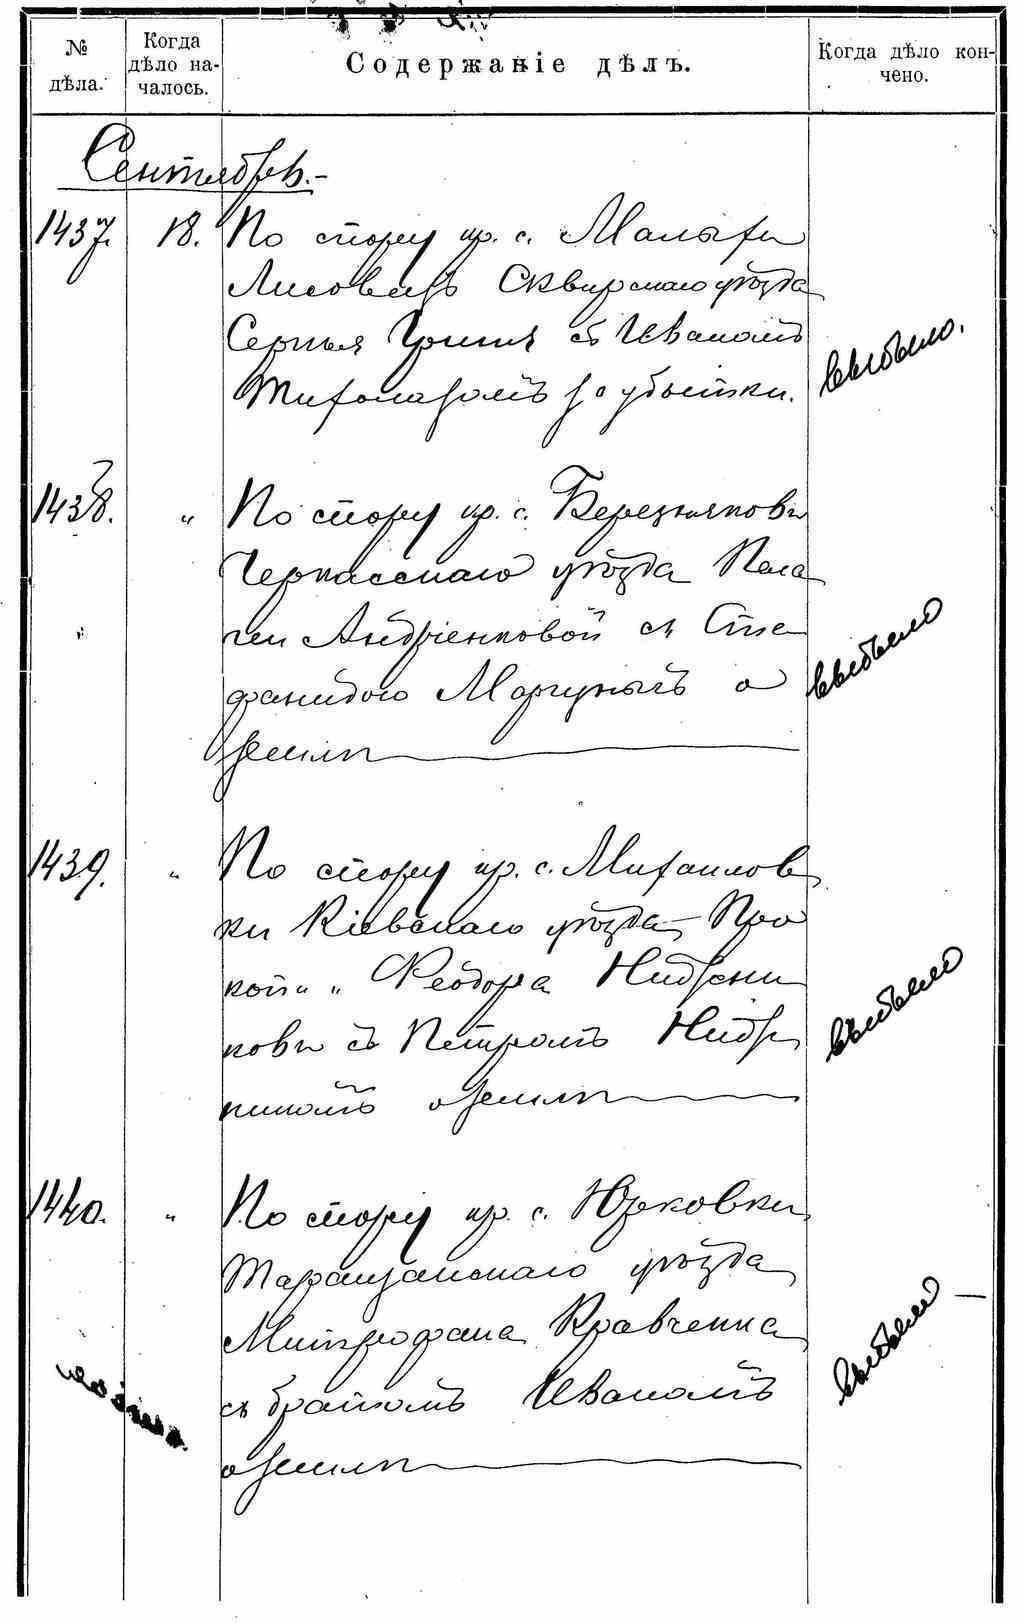 № дѣла.
Когда дѣло на-
чалось.
Содержаніе дѣлъ.
Когда дѣло кон-
чено.
Сентябрь.-
1437. 18. По спору кр. с. Малыхъ
Лисовецъ Сквирскаго уѣзда
Сергѣя с Иваномъ
за убытки.
выбыло.
1438. " По спору кр. с. Березняковъ
Черкасскаго уѣзда Пела
геи Андріенковой съ Сте
фанидою Моргунычъ о
землѣ
выбыло
1439. " По спору кр. с. Михайлов
ки Кіевскаго уѣзда Про
копі " Ѳеодора
ковъ съ Петромъ
о землѣ
выбыло
1440. " По спору кр. с. Юрковки
Таращанскаго уѣзда
Митрофана Кравченка
съ братомъ Иваномъ
о землѣ
выбыло —